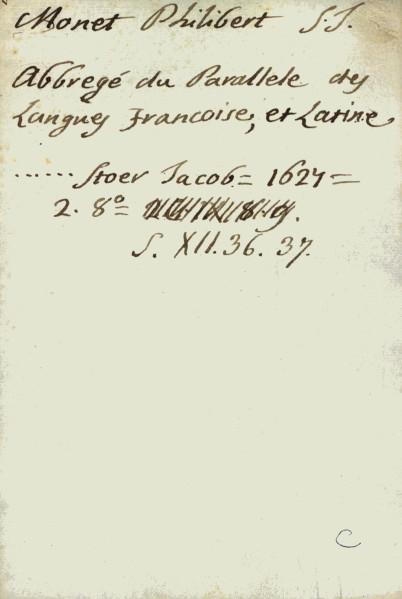 Monet Philibert S.J.
Abbregé du Parallele des
Langues Francoise, et Latine
...... Stoer Jacob = 1627 =
2. 8° =
S. XII. 36. 37.
C